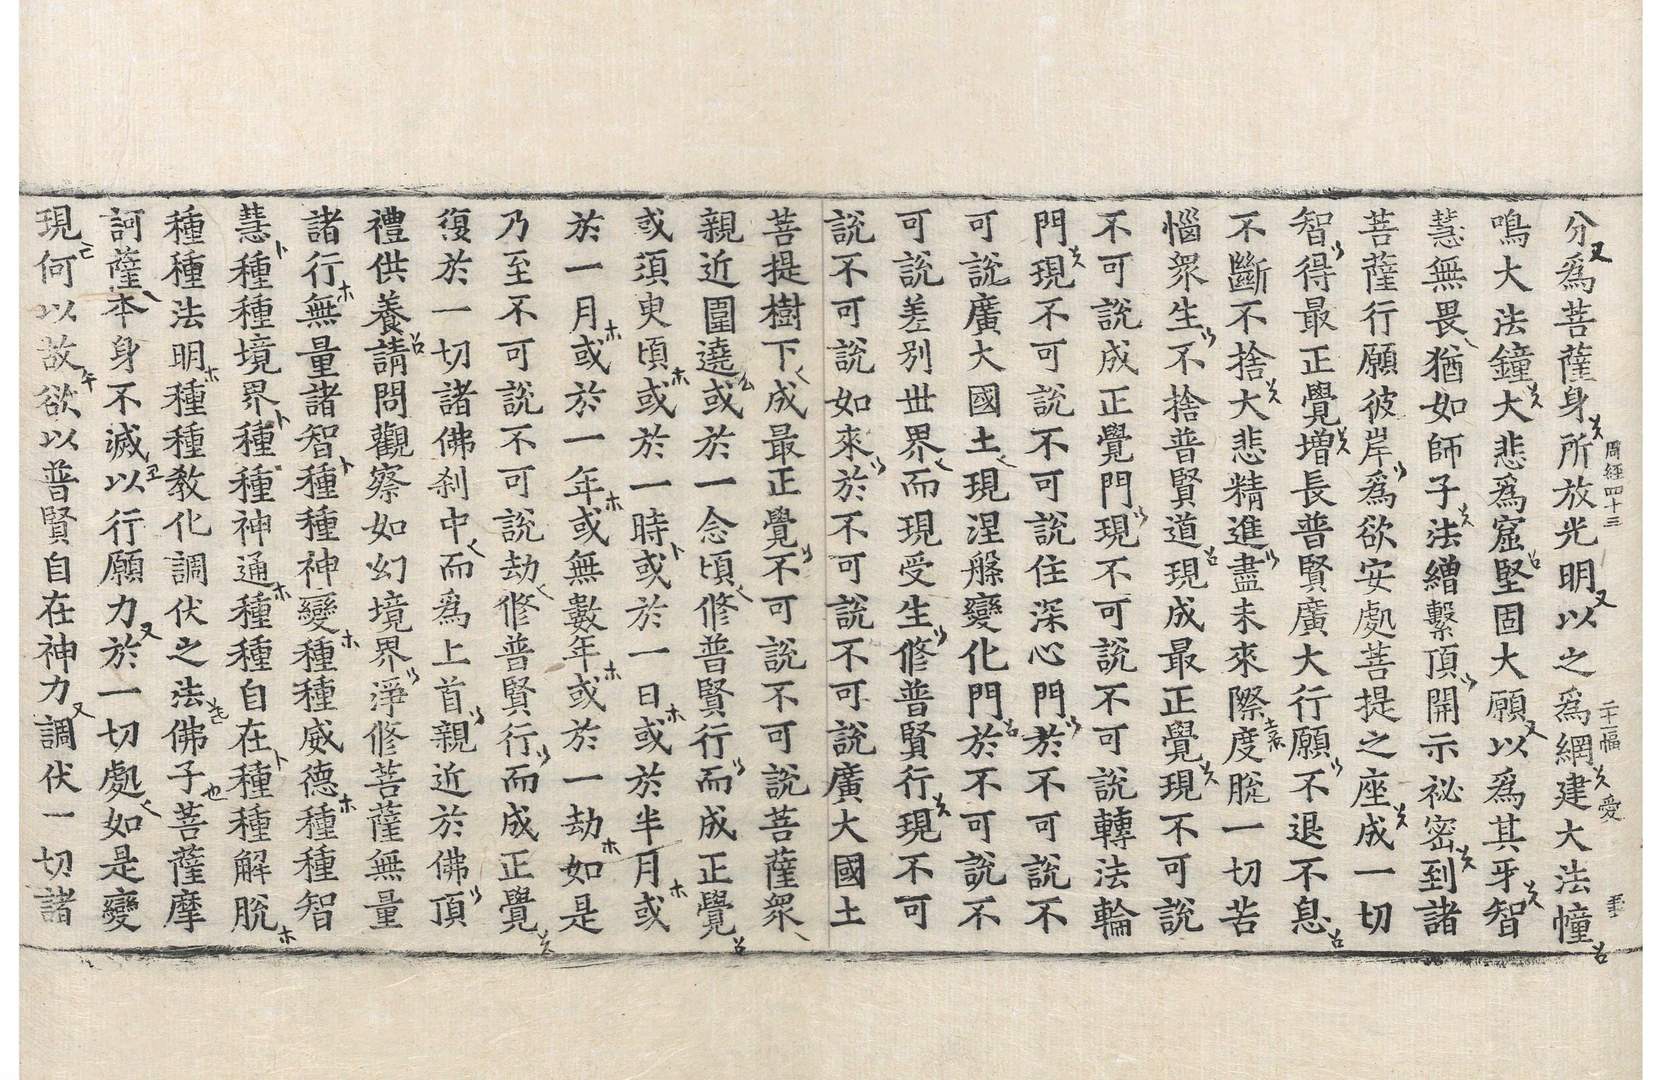 周經四十三
分爲菩薩身所放光明以之爲網建大法幢
鳴大法鐘大悲爲窟堅固大願以爲其牙智
慧無畏猶如師子法繒繫頂開示祕密到諸
菩薩行願彼岸爲欲安處菩提之座成一切
智得最正覺增長普賢廣大行願不退不息
不斷不捨大悲精進盡未來際度脫一切苦
惱衆生不捨普賢道現成最正覺現不可說
不可說成正覺門現不可說不可說轉法輪
門現不可說不可說住深心門於不可說不
可說廣大國土現涅槃變化門於不可說不
可說差別世界而現受生修普賢行現不可
說不可說如來於不可說不可說廣大國土
菩提樹下成最正覺不可說不可說菩薩衆
親近圍遶或於一念頃修普賢行而成正覺
或須臾頃或於一時或於一日或於半月或
於一月或於一年或無數年或於一劫如是
乃至不可說不可說劫修普賢行而成正覺
復於一切諸佛刹中而爲上首親近於佛頂
禮供養請問觀察如幻境界淨修菩薩無量
諸行無量諸智種種神變種種威德種種智
慧種種境界種種神通種種自在種種解脫
種種法明種種教化調伏之法佛子菩薩摩
訶薩本身不滅以行願力於一切處如是變
現何以故欲以普賢自在神力調伏一切諸